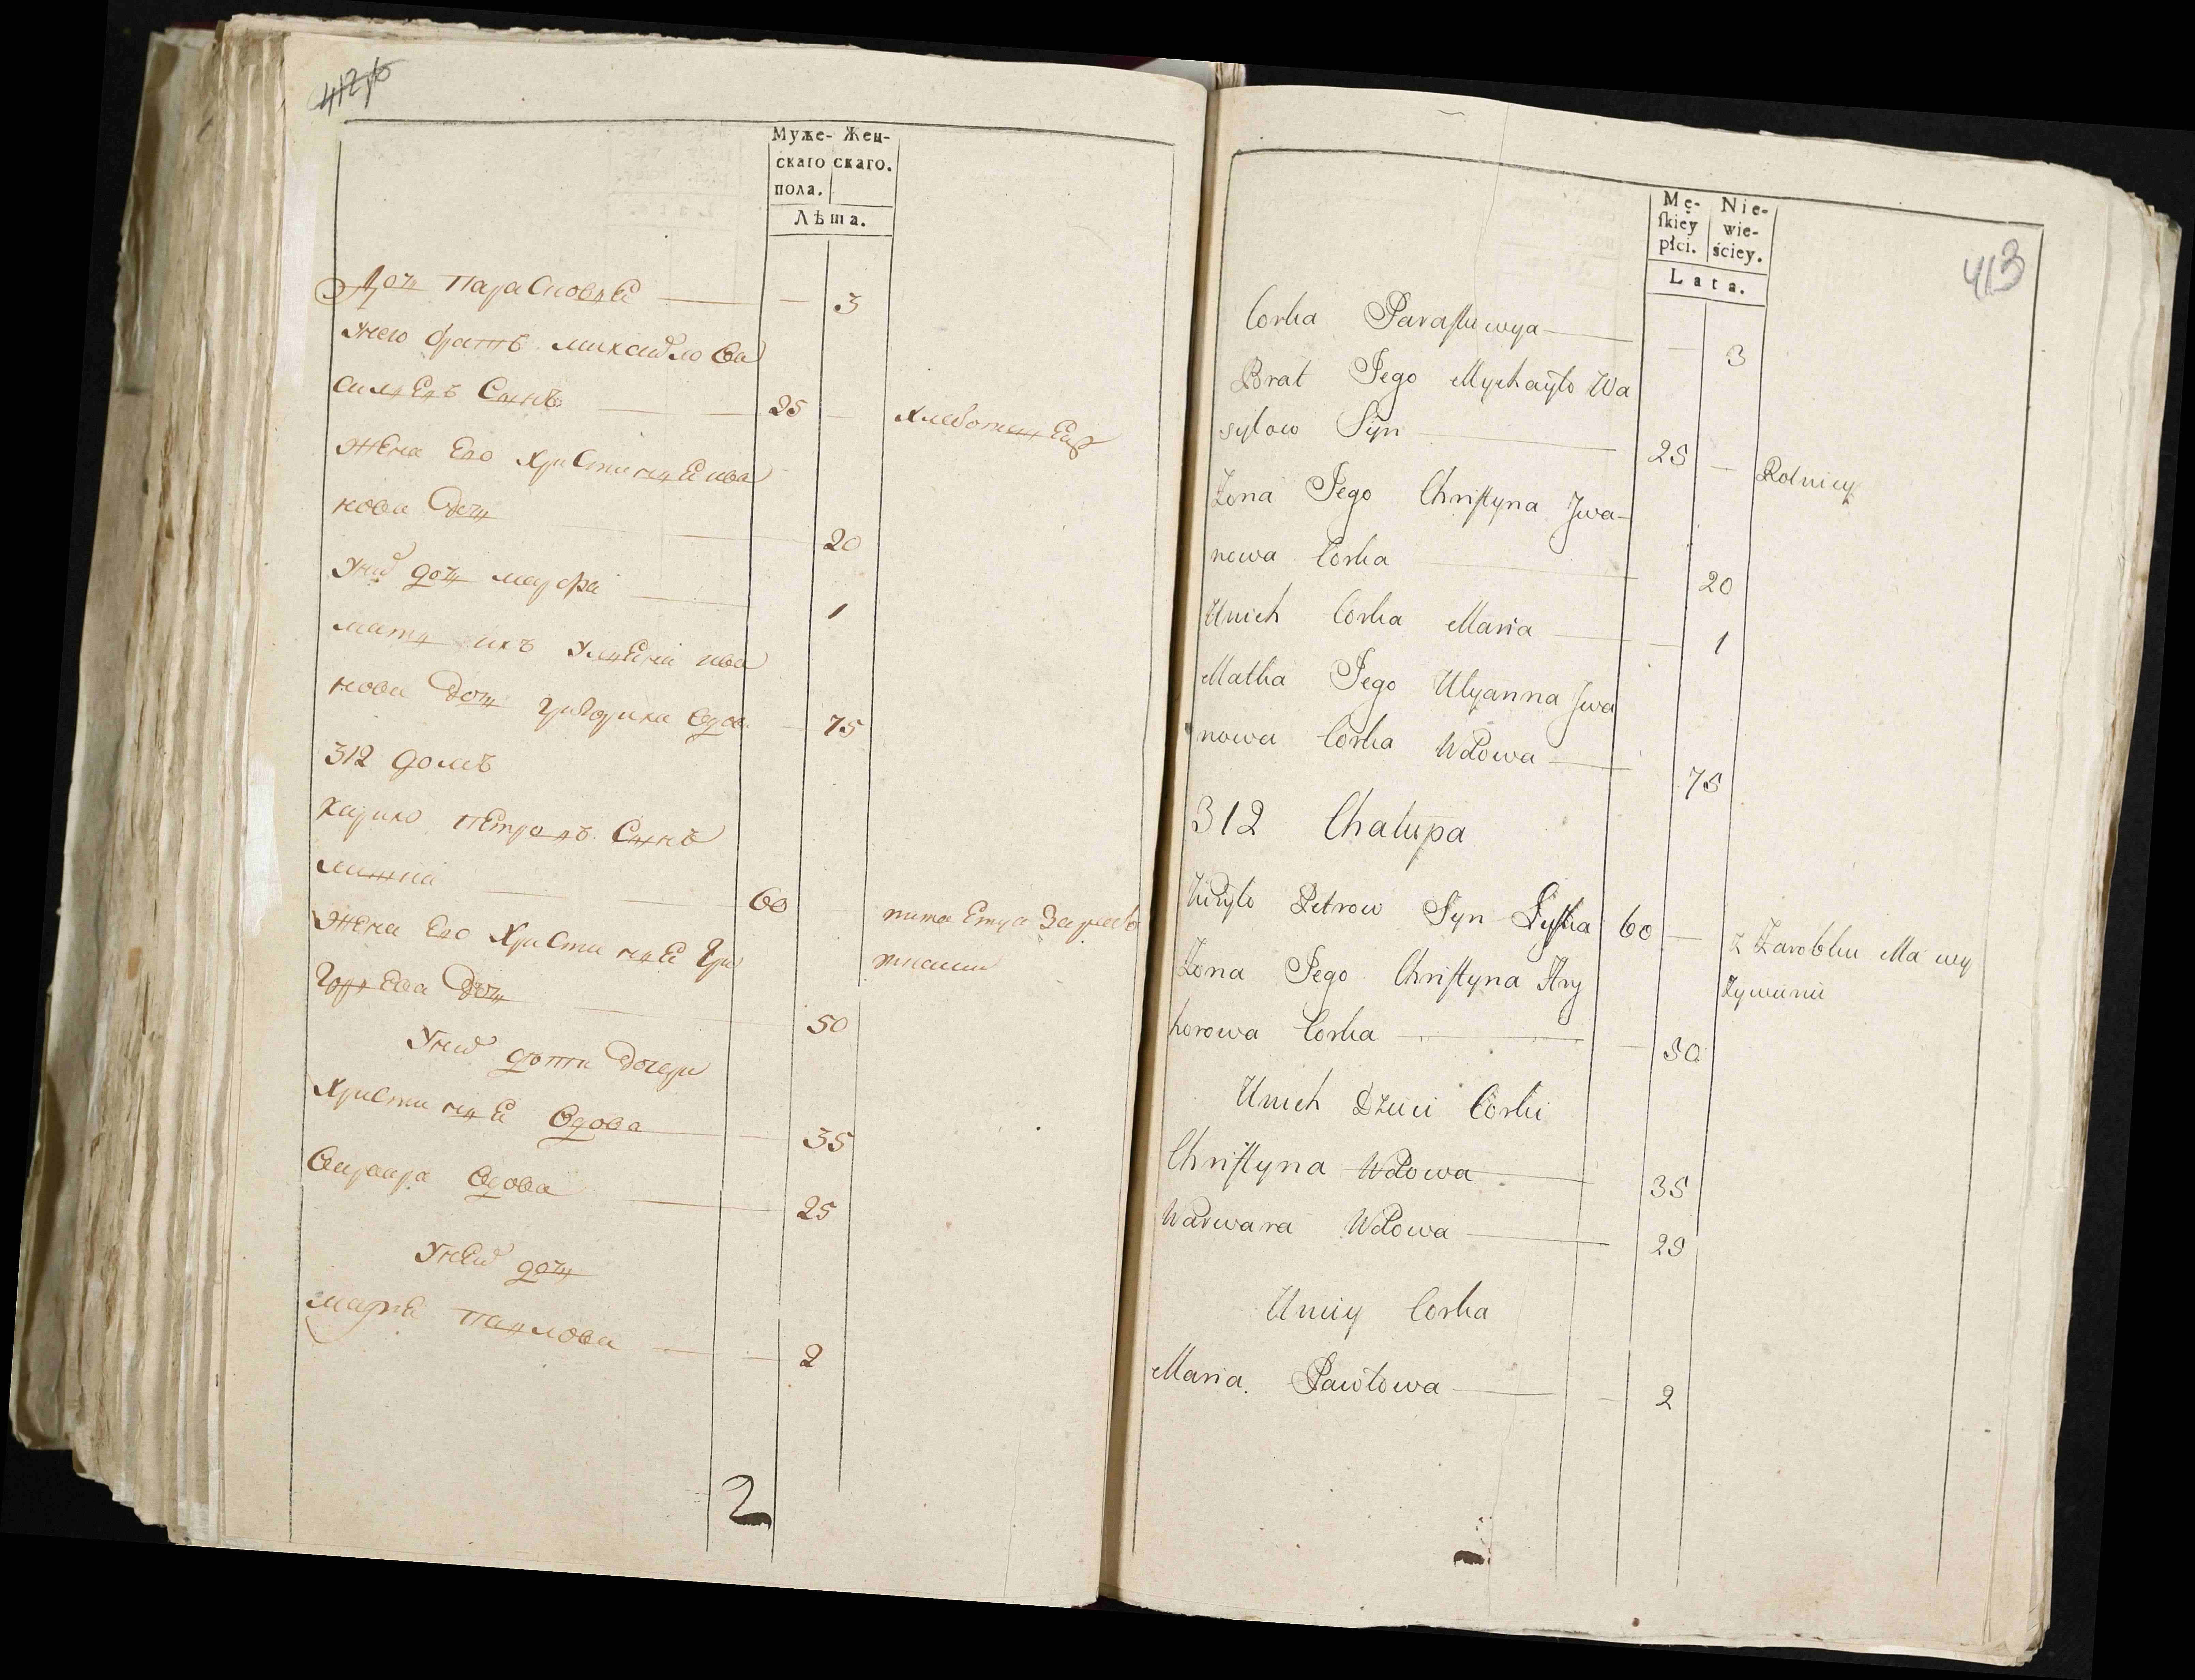 Муже- Жен-
скаго скаго.
пола.
Лѣта.
Дочь Парасковья — — 3
у него братъ михайло ва
сильевъ Сынъ — 25 — хлебопашец
жена Его христинья ива
нова Дочь — 20
у них дочь марфа — 1
мать ихъ ульяна ива
нова Дочь вдова — 75
312 домъ
Петровъ Сынъ
— 60
жена Его христинья Гри
горьева Дочь — 50
у них дети дочери
христинья вдова — 35
варвара вдова — 25
у ней дочь
марья павлова — 2
2
413
Mę- Nie-
ſkiey wie-
płci. ściey.
Lata.
Corka Paraſkiewya — — 3
Brat Jego Mychayło Wa
sylow Syn — 25 — Rolnicy
Zona Jego Chriſtyna Jwa-
nowa Corka — 20
Unich Corka Maria — — 1
Matka Jego Ulyanna Jwa
nowa Corka Wdowa — 75
312 Chalupa
Petrow Syn 60 — z Zarobku Ma wy
Zona Jego Chriſtyna Hry
Zywienie
horowa Corka — — 50
Unich Dzieci Corki
Chriſtyna Wdowa — 35
Warwara Wdowa — 25
Unıey Corka
Maria Pawłowa — — 2